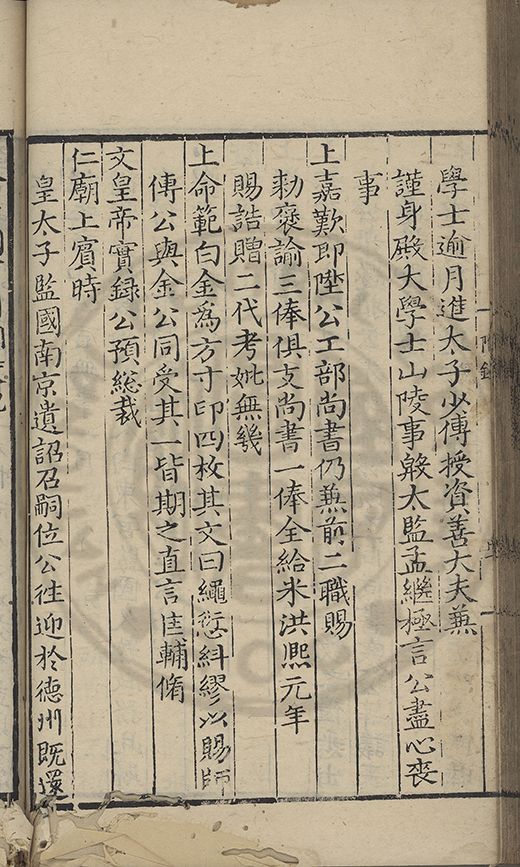 學士逾月進太子少傅授資善大夫兼
謹身殿大學士山陵事毀太監孟繼極言公盡心喪
事
上嘉歎即陞公工部尚書仍兼前二職賜
勑褒諭三俸俱支尚書一俸全給米洪熙元年
賜誥贈二代考妣無幾
上命範白金為方寸印四枚其文曰繩愆糾繆以賜師
傅公與金公同受其一皆期之直言匡輔脩
文皇帝實録公預総裁
仁廟上賓時
皇太子監國南京遺詔召嗣位公徃迎於德州既還